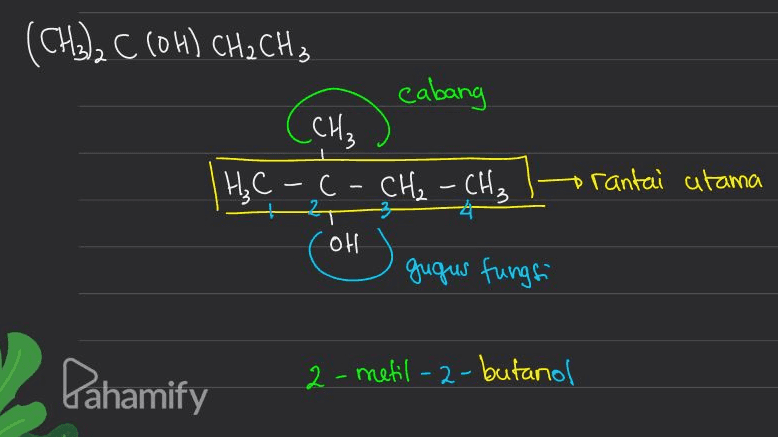 (CH₃)₂ C (OH) CH₂CH₃
cabang
CH₃
H₃C – C – CH₂ – CH₃ → rantai utama
1 2 3 4
OH
gugus fungsi
2 - metil - 2 - butanol
Pahamify